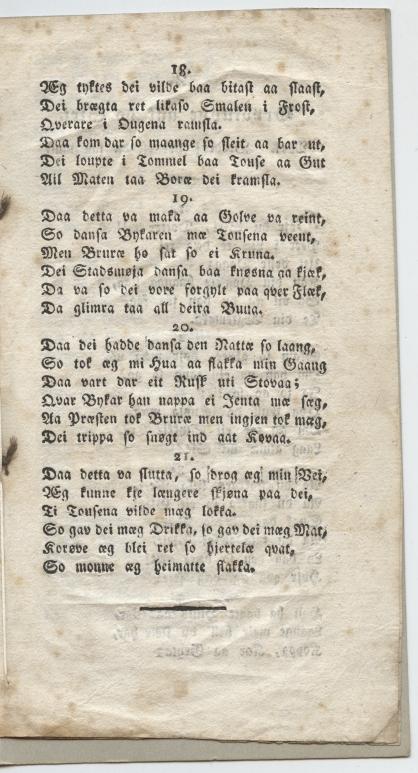 18.
Æg tyktes dei vilde baa bitast aa slaast,
Dei brægta ret likaso Smalen i Frost,
Qverare i Ougena ramsla.
Daa kom dar so maange so sleit aa bar ut,
Dei loupte i Tommel baa Touse aa Gut
Ail Maten taa Boræ dei kramsla.
19.
Daa detta va maka aa Golve va reint,
So dansa Bykaren mæ Tousena veent,
Men Bruræ ho sat so ei Kruna.
Dei Stadsmøja dansa baa knøsna aa kjæk,
Da va so dei vore forgylt paa qver Flæk,
Da glimra taa all deira Buna.
20.
Daa dei hadde dansa den Nattæ so laang,
So tok æg mi Hua aa flakka min Gaang
Daa vart dar eit Rusk uti Stovaa;
Qvar Bykar han nappa ei Jenta mæ sæg,
Aa Præsten tok Bruræ men ingjen tok mæg,
Dei trippa so snøgt ind aat Køvaa.
21.
Daa detta va slutta, so drog æg min Vei,
Æg kunne kje længere skjøna paa dei,
Ti Tousena vilde mæg lokka.
So gav dei mæg Drikka, so gav dei mæg Mat,
Korøve æg blei ret so hjertelæ qvat,
So monne æg heimatte flakka.